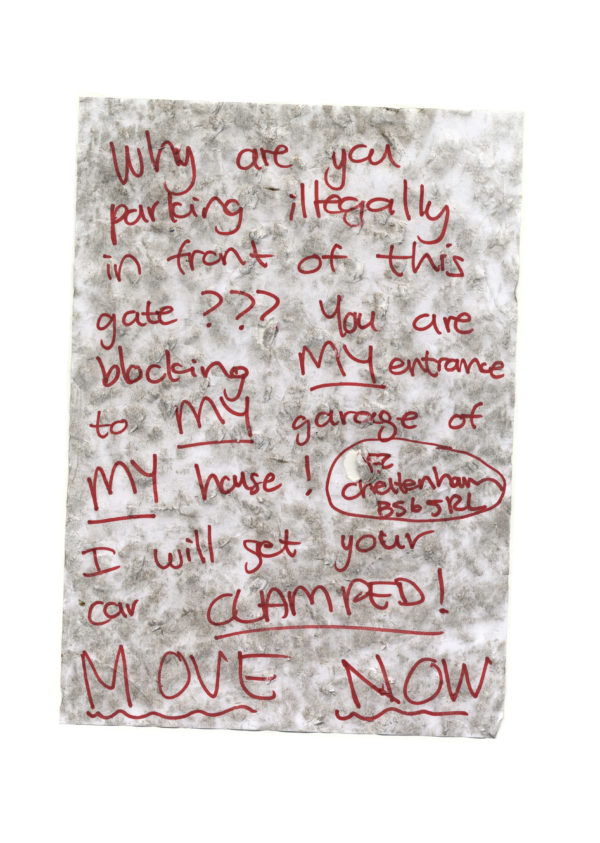 Why are you
parking illegally
in front of this
gate ??? You are
blocking MY entrance
to MY garage of
MY house !
Cheltenham
BS6 5RL
I will get your
car CLAMPED!
MOVE NOW